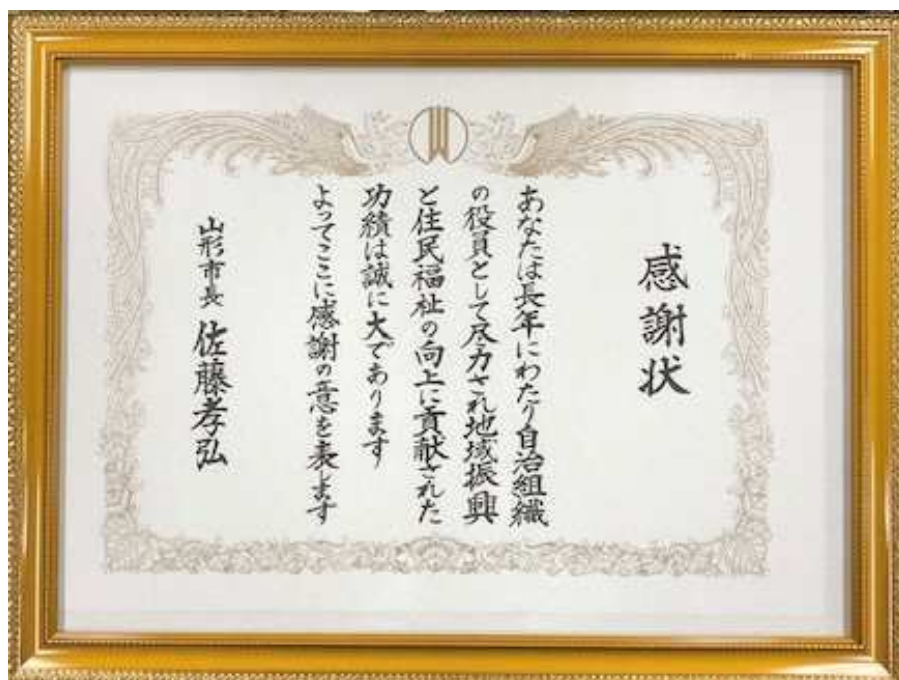 感謝状
あなたは長年にわたり自治組織
の役員として尽力され地域振興
と住民福祉の向上に貢献された
功績は誠に大であります
よってここに感謝の意を表します
山形市長 佐藤孝弘